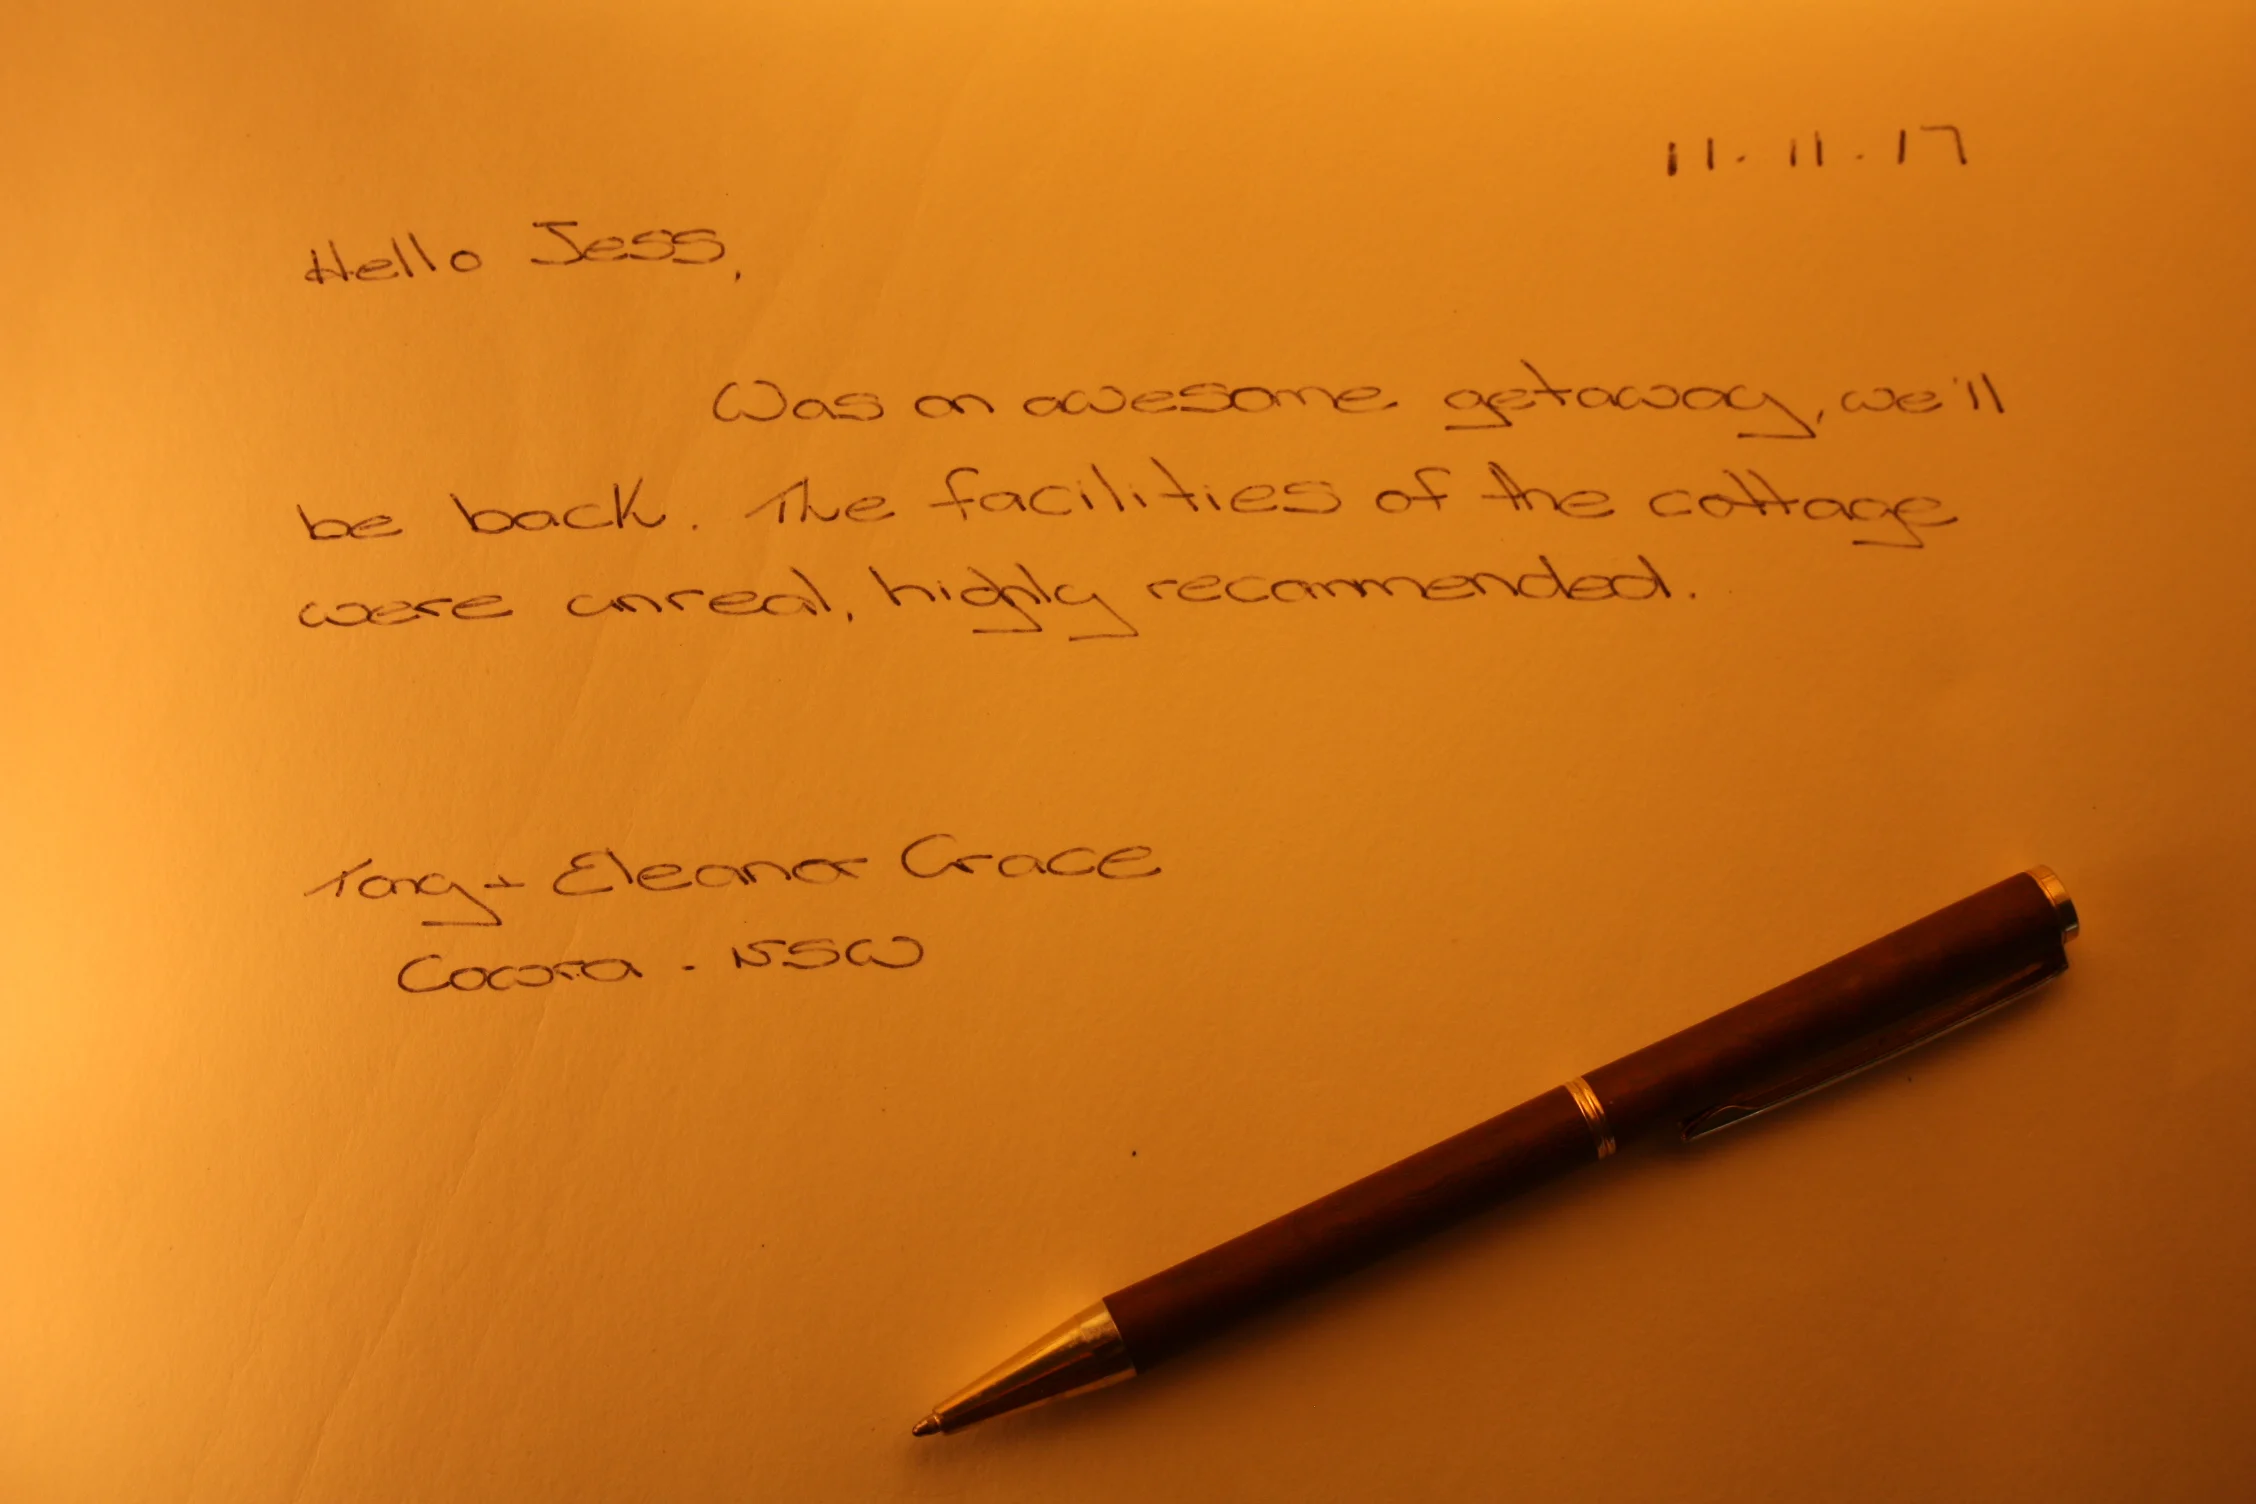 11.11.17
Hello Jess,
Was an awesome getaway, we'll
be back. The facilities of the cottage
were unreal, highly recommended.
Tony + Eleanor Grace
Cowra - NSW